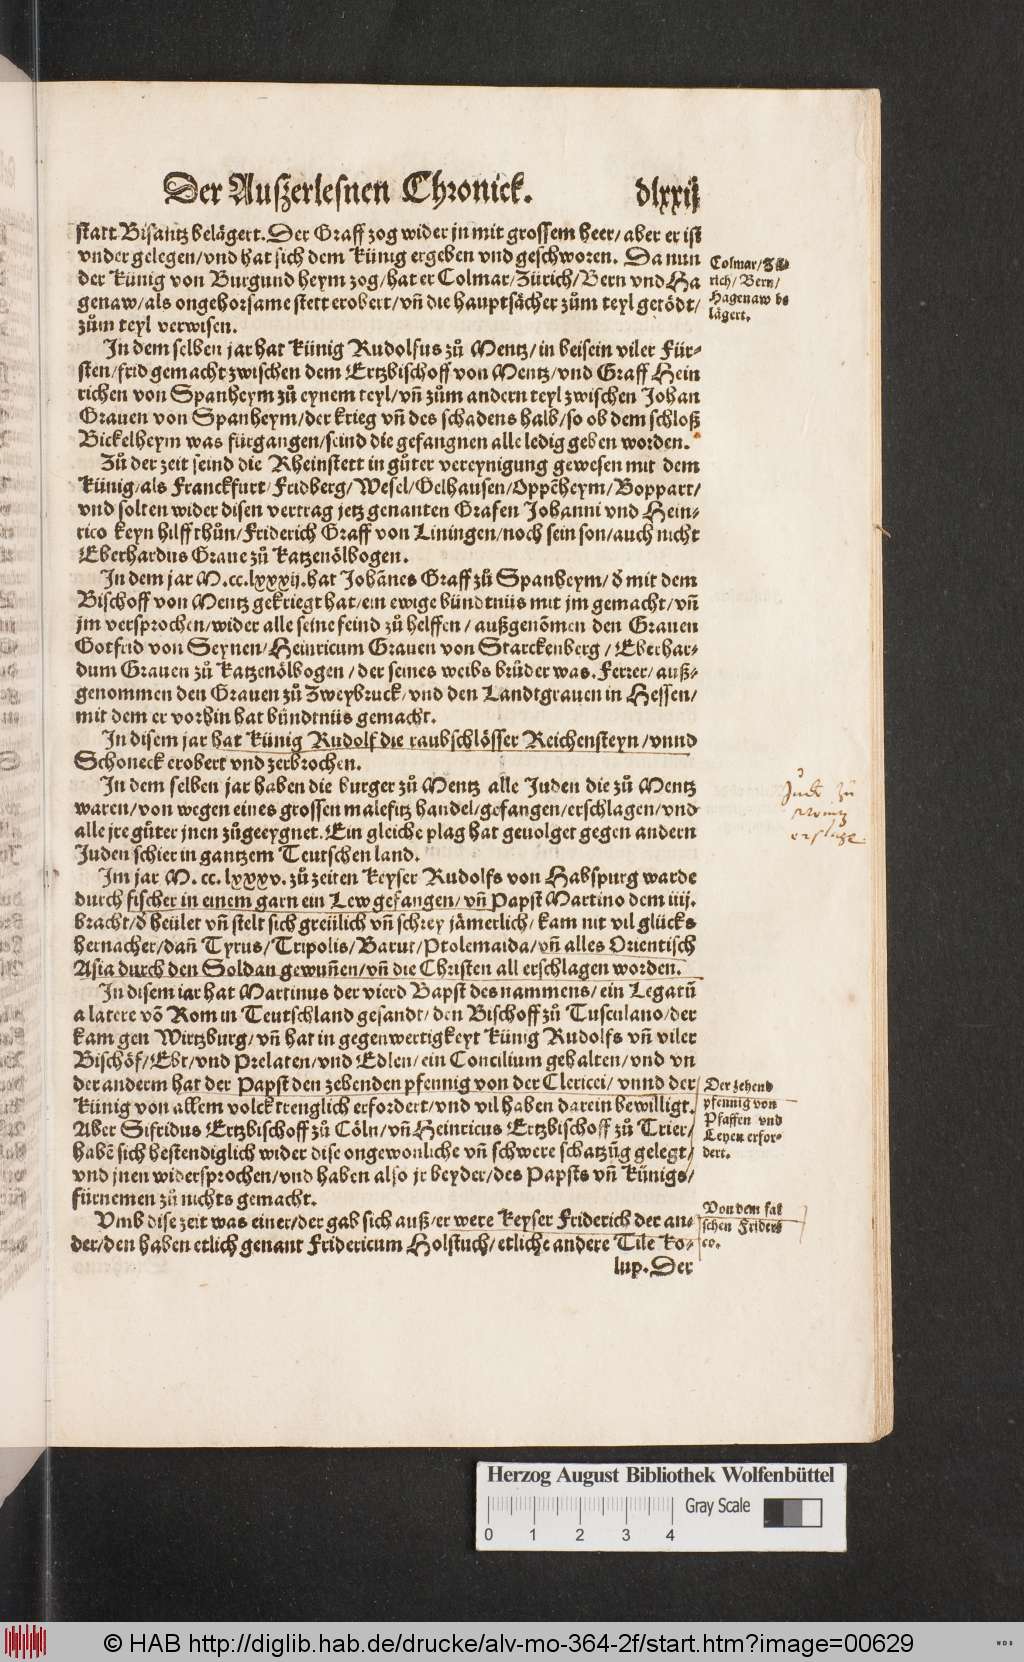 Der Auszerlesnen Chronick. dlxxij
statt Bisantz belägert. Der Graff zog wider jn mit grossem heer/ aber er ist
vnder gelegen/ vnd hat sich dem Künig ergeben vnd geschworen. Da nun
der Künig von Burgund heym zog/ hat er Colmar/ Zürich/ Bern vnd Ha
genaw/ als ongehorsame stett erobert/ vñ die hauptsächer zům teyl getödt/
zům teyl verwisen.
Colmar/ Zü
rich/ Bern/
Hagenaw be
lägert.
In dem selben jar hat Künig Rudolfus zů Mentz/ in beisein viler Für-
sten/ frid gemacht zwischen dem Ertzbischoff von Mentz/ vnd Graff Hein
richen von Spanheym zů eynem teyl/ vñ zům andern teyl zwischen Johan
Grauen von Spanheym/ der krieg vñ des schadens halb/ so ob dem schloß
Bickelheym was fürgangen/ seind die gefangnen alle ledig geben worden.
Zů der zeit seind die Rheinstett in gůter vereynigung gewesen mit dem
Künig/ als Franckfurt/ Fridberg/ Wesel/ Gelhausen/ Oppẽheym/ Boppart/
vnd solten wider disen vertrag jetz genanten Grafen Johanni vnd Hein-
rico keyn hilff thůn/ Friderich Graff von Liningen/ noch sein son/ auch nicht
Eberhardus Graue zů Katzenölbogen.
In dem jar M.cc.lxxxij. hat Johãnes Graff zů Spanheym/ d̓ mit dem
Bischoff von Mentz gekriegt hat/ ein ewige bündtnüs mit jm gemacht/ vñ
jm versprochen/ wider alle seine feind zů helffen/ außgenõmen den Grauen
Gotfrid von Seynen/ Heinricum Grauen von Starckenberg/ Eberhar-
dum Grauen zů Katzenölbogen/ der seines weibs brůder was. Ferrer/ auß-
genommen den Grauen zů Zweybruck/ vnd den Landtgrauen in Hessen/
mit dem er vorhin hat bündtnüs gemacht.
In disem jar hat Künig Rudolf die raubschlösser Reichensteyn/ vnnd
Schoneck erobert vnd zerbrochen.
In dem selben jar haben die burger zů Mentz alle Juden die zů Mentz
waren/ von wegen eines grossen malefitz handel/ gefangen/ erschlagen/ vnd
alle jre gůter jnen zůgeeygnet. Ein gleiche plag hat geuolget gegen andern
Juden schier in gantzem Teutschen land.
Im jar M. cc. lxxxv. zů zeiten Keyser Rudolfs von Habspurg warde
durch fischer in einem garn ein Lew gefangen/ vñ Papst Martino dem iiij.
bracht/ d̓ heület vñ stelt sich greülich vñ schrey jämerlich/ kam nit vil glücks
hernacher/ dañ Tyrus/ Tripolis/ Barut/ Ptolemaida/ vñ alles Orientisch
Asia durch den Soldan gewuñen/ vñ die Christen all erschlagen worden.
In disem iar hat Martinus der vierd Bapst des nammens/ ein Legatũ
a latere võ Rom in Teutschland gesandt/ den Bischoff zů Tusculano/ der
kam gen Wirtzburg/ vñ hat in gegenwertigkeyt Künig Rudolfs vñ viler
Bischöf/ Ebt/ vnd Prelaten/ vnd Edlen/ ein Concilium gehalten/ vnd vn
der anderm hat der Papst den zehenden pfennig von der Clericei/ vnnd der
Künig von allem volck trenglich erfordert/ vnd vil haben darein bewilligt.
Aber Sifridus Ertzbischoff zů Cöln/ vñ Heinricus Ertzbischoff zů Trier/
habẽ sich bestendiglich wider dise ongewonliche vñ schwere schatzũg gelegt/
vnd jnen widersprochen/ vnd haben also jr beyder/ des Papsts vñ Künigs/
fürnemen zů nichts gemacht.
Der zehend
pfennig von
Pfaffen vnd
Leyen erfor-
dert.
Vmb dise zeit was einer/ der gab sich auß/ er were Keyser Friderich der an-
der/ den haben etlich genant Fridericum Holstuch/ etliche andere Tile Ko-
lup. Der
Von dem fal
schen Frideri
co.
Herzog August Bibliothek Wolfenbüttel
0 1 2 3 4 Gray Scale
© HAB http://diglib.hab.de/drucke/alv-mo-364-2f/start.htm?image=00629